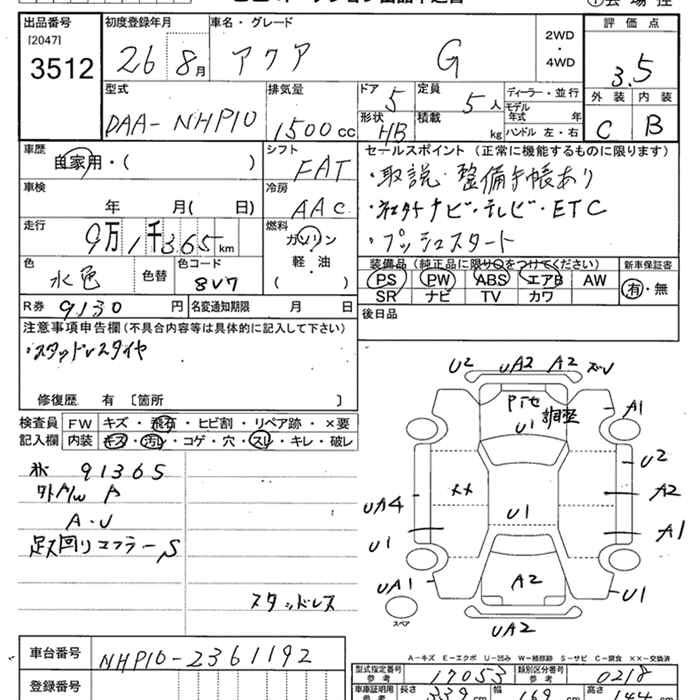 出品番号 初度登録年月 車名・グレード 2WD・4WD 評価点
[2047]
3512 26 8月 アクア G 3.5
型式 排気量 ドア 5 定員 5人 ディーラー・並行 外装 内装
DAA-NHP10 1500cc 形状 HB 積載 kg モデル年式 年 ハンドル 左・右 C B
車歴 自家用・( ) シフト FAT セールスポイント (正常に機能するものに限ります)
車検 年 月( 日) 冷房 AAC ・取説・整備手帳あり
走行 9万1千365km 燃料 ガソリン 軽・油 ( ) ナビ・テレビ・ETC
・プッシュスタート
色 水色 色替 色コード 8V7 装備品(純正品に限り○をつけてください) 新車保証書
PS PW ABS エアB AW 有・無
SR ナビ TV カワ
R券 9130円 名変通知期限 月 日 後日品
注意事項申告欄(不具合内容等は具体的に記入して下さい)
・スタッドレスタイヤ
修復歴 有 [箇所 ]
検査員 FW キズ・飛石・ヒビ割・リペア跡・×要
記入欄 内装 キズ・汚レ・コゲ・穴・スレ・キレ・破レ
91365
A・U
足廻りマフラーS
スタッドレス
U2 UA2 A2 ズレ
調整
U1 A1
U2
UA4 ×× U1 A2
U1 A1
UA1 A2 U1
スペア UA2
A-キズ E-エクボ U-凹み W-補修跡 S-サビ C-腐食 XX-交換済
車台番号 NHP10-2361192
型式指定番号 参考 17053 類別区分番号 参考 0218
登録番号
車庫証明用 参考 長さ 幅 169 高さ 144